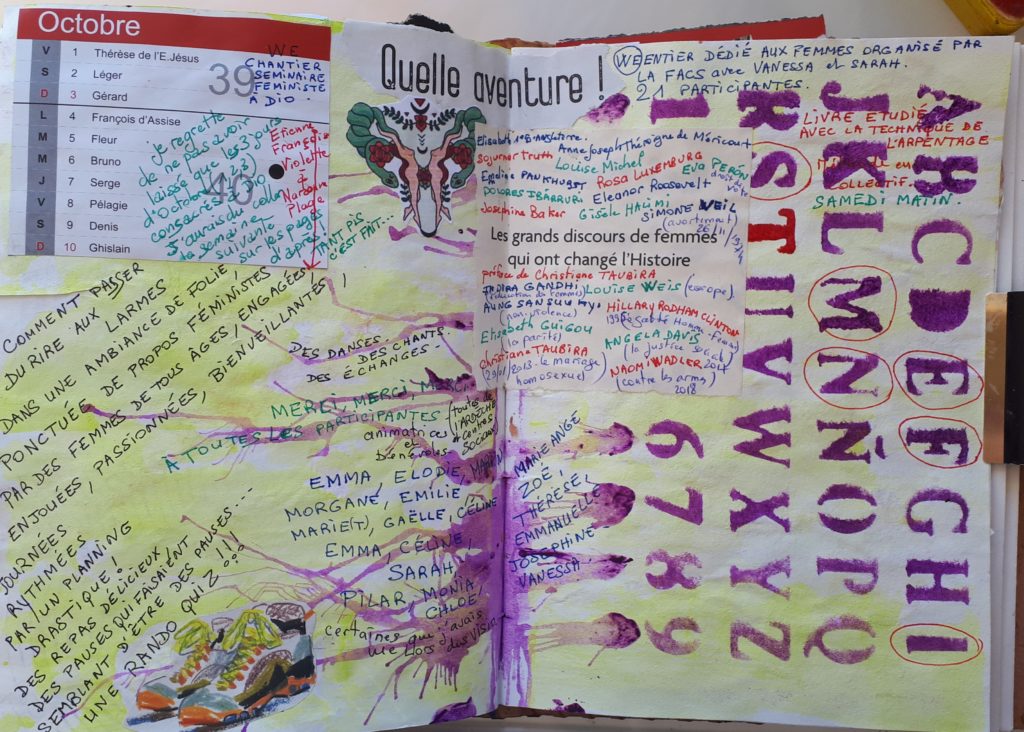 Octobre
V 1 Thérèse de l'E.Jésus
S 2 Léger
D 3 Gérard
39
L 4 François d'Assise
M 5 Fleur
M 6 Bruno
J 7 Serge
V 8 Pélagie
S 9 Denis
D 10 Ghislain
40
WE
CHANTIER
SEMINAIRE
FEMINISTE
A DIO.
je regrette
de ne pas avoir
laissé que les 3 jours
d'Octobre (1 2 3)
consacrés à DIO
J'aurais du coller
la semaine
suivante
sur les pages
d'après!
Etienne
François
Violette
à
Narbonne
Plage
TANT PIS
C'EST FAIT...
COMMENT PASSER
DU RIRE AUX LARMES
DANS UNE AMBIANCE DE FOLIE,
PONCTUÉE DE PROPOS FÉMINISTES
PAR DES FEMMES DE TOUS ÂGES, ENGAGÉES,
ENJOUÉES, PASSIONNÉES, BIENVEILLANTES,
JOURNÉES
RYTHMÉES
PAR UN PLANNING
DRASTIQUE!
DES REPAS DÉLICIEUX
DES PAUSES QUI FAISAIENT
SEMBLANT D'ÊTRE DES PAUSES...
UNE RANDO QUIZ!!!
DES DANSES.
DES CHANTS.
DES ÉCHANGES.
MERCI, MERCI, MERCI
À TOUTES LES PARTICIPANTES
animatrices
et
bénévoles
(toutes de
l'ARDÈCHE
centres
SOCIAUX
EMMA, ELODIE,
MORGANE, EMILIE,
MARIE(T), GAËLLE, CÉLINE
EMMA, CÉLINE,
SARAH,
PILAR, MONIA
CHLOÉ,
certaines que j'avais
vue lors des Visio
Quelle aventure !
WE ENTIER DÉDIÉ AUX FEMMES ORGANISÉ PAR
LA FACS avec VANESSA et SARAH.
21 PARTICIPANTES.
LIVRE ETUDIÉ
AVEC LA TECHNIQUE DE
L'ARPENTAGE
COLLECTIF.
SAMEDI MATIN.
Elisabeth 1ère Angleterre. Anne Joseph Théroigne de Méricourt
Sojourner Truth Louise Michel
Emeline PANKHURST Rosa LUXEMBURG Eva PERÓN
droit de vote
DOLORES IBARRURI Eleanor Roosevelt
Josephine Baker Gisèle HALIMI
SIMONE VEIL
(avortement)
26/11/1974
Les grands discours de femmes
qui ont changé l'Histoire
préface de Christiane TAUBIRA
INDIRA GANDHI
(éducation des femmes)
LOUISE WEIS (europe).
AUNG SAN SUU KYI
(non-violence)
HILLARY RODHAM CLINTON
1995 égalité Homme-Femme
Elisabeth GUIGOU
(la parité)
ANGELA DAVIS
(la justice sociale)
christiane TAUBIRA
(29/01/2013. le mariage
homosexuel)
NAOMI WADLER
(contre les armes)
2018
MARIE ANGE
ZOÉ,
THÉRÈSE,
EMMANUELLE
JOSÉPHINE
VANESSA.
1
6789
RSTUVWXYZ
JKLMNÑOPQ
ABCDEFGHI